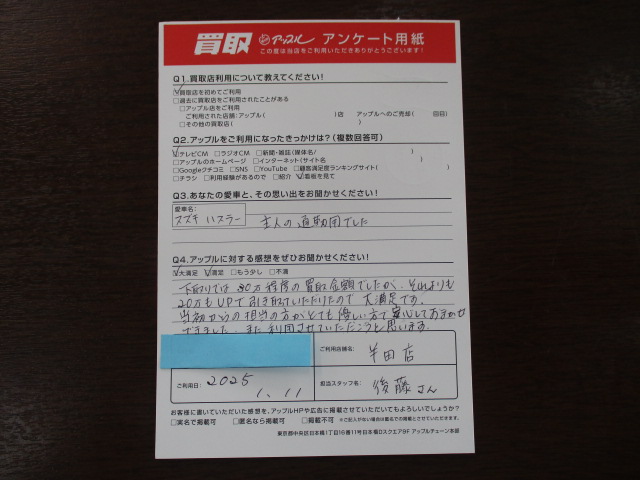 買取 アップル アンケート用紙
この度は当店をご利用いただきありがとうございます!
Q1.買取店利用について教えてください!
☑買取店を初めてご利用
□過去に買取店をご利用されたことがある
□アップル店をご利用
ご利用された店舗:アップル( )店 アップルへのご売却( 回目)
□その他の買取店( )
Q2.アップルをご利用になったきっかけは?(複数回答可)
☑テレビCM □ラジオCM □新聞・雑誌(媒体名/ )
□アップルのホームページ □インターネット(サイト名 )
□Googleクチコミ □SNS □YouTube □顧客満足度ランキングサイト( )
□チラシ □利用経験があるので □紹介 ☑看板を見て
Q3.あなたの愛車と、その思い出をお聞かせください!
愛車名:
スズキ ハスラー 主人の通勤用でした
Q4.アップルに対する感想をぜひお聞かせください!
☑大満足 ☑満足 □もう少し □不満
下取りでは 30万程度の買取金額でしたが、それよりも
20万もUPで引き取っていただけたので 大満足です。
当初からの担当の方がとても優しい方で安心しておまかせ
できました。また利用させていただこうと思います。
ご利用店舗名:
半田店
ご利用日: 2025 1.11
担当スタッフ名: 後藤さん
お客様に書いていただいた感想を、アップルHPや広告に掲載させていただいてもよろしいでしょうか?
□実名で掲載可 □匿名なら掲載可 □掲載不可 ※ご記入がない場合は匿名での掲載とさせていただきます。
東京都中央区日本橋1丁目16番11号日本橋Dスクエア9F アップルチェーン本部